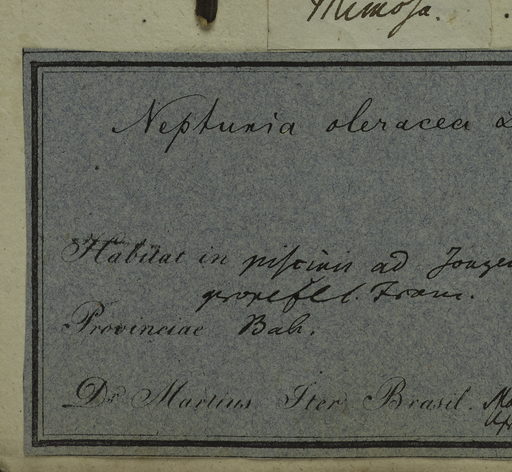 Mimosa.
Neptunia oleracea
Habitat in piscinis ad
prope fl. S. Franc.
Provinciae Bah.
Dr. Martius Iter Brasil.